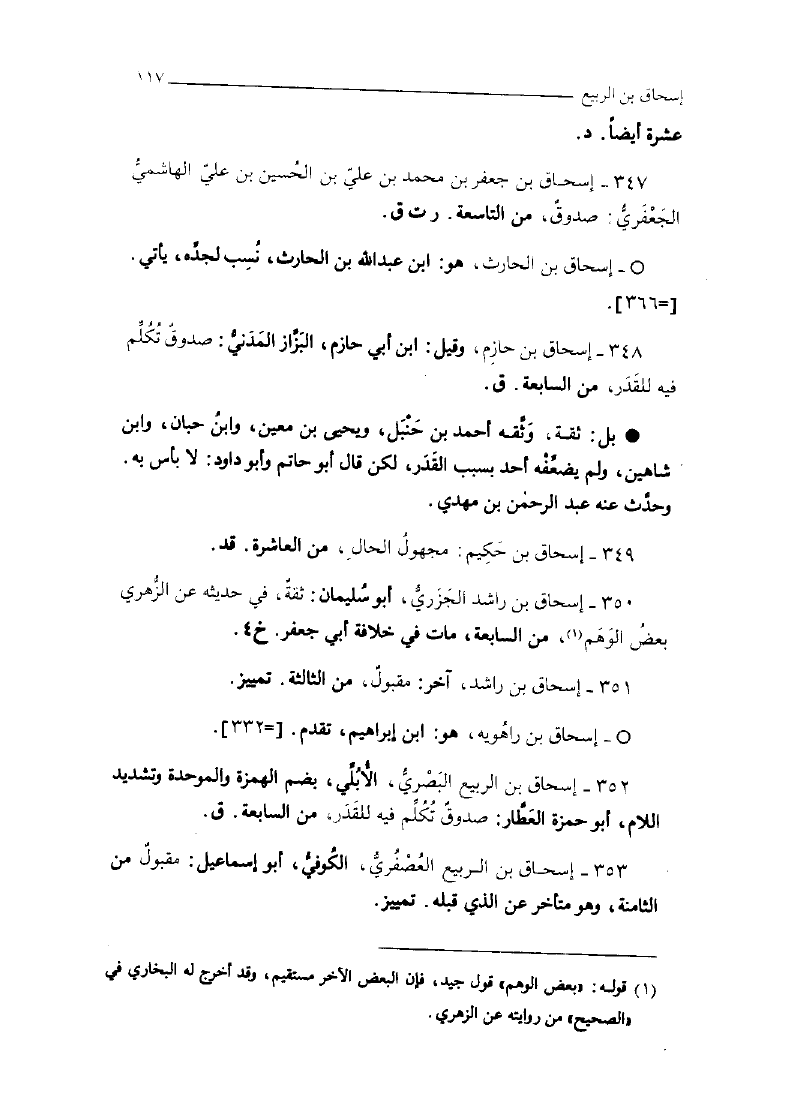 إسحاق بن الربيع ١١٧
عشرة أيضاً. د.
٣٤٧ ـ إسحاق بن جعفر بن محمد بن عليّ بن الحُسين بن عليّ الهاشميُّ
الجَعْفَريُّ: صدوقٌ، من التاسعة. ر ت ق.
○ ـ إسحاق بن الحارث، هو: ابن عبدالله بن الحارث، نُسِب لجدِّه، يأتي.
[=٣٦٦].
٣٤٨ ـ إسحاق بن حازِم، وقيل: ابن أبي حازم، البَزَّاز المَدَنيُّ: صدوقٌ تُكُلِّم
فيه للقَدَر، من السابعة. ق.
● بل: ثقة، وَثَّقه أحمد بن حَنْبَل، ويحيى بن معين، وابنُ حبان، وابن
شاهين، ولم يضعِّفْه أحد بسبب القَدَر، لكن قال أبو حاتم وأبو داود: لا بأس به.
وحدَّث عنه عبد الرحمٰن بن مهدي.
٣٤٩ ـ إسحاق بن حَكِيم: مجهولُ الحالِ، من العاشرة. قد.
٣٥٠ ـ إسحاق بن راشد الجَزَريُّ، أبو سُليمان: ثقةٌ، في حديثه عن الزُّهري
بعضُ الوَهَم(١)، من السابعة، مات في خلافة أبي جعفر. خ٤.
٣٥١ ـ إسحاق بن راشد، آخر: مقبولٌ، من الثالثة. تمييز.
○ ـ إسحاق بن راهُويه، هو: ابن إبراهيم، تقدم. [=٣٣٢].
٣٥٢ ـ إسحاق بن الربيع البَصْريُّ، الأُبُلِّي، بضم الهمزة والموحدة وتشديد
اللام، أبو حمزة العَطَّار: صدوقٌ تُكُلِّم فيه للقَدَر، من السابعة. ق.
٣٥٣ ـ إسحاق بن الربيع العُصْفُريُّ، الكُوفيُّ، أبو إسماعيل: مقبولٌ من
الثامنة، وهو متأخر عن الذي قبله. تمييز.
(١) قوله: «بعض الوهم» قول جيد، فإن البعض الآخر مستقيم، وقد أخرج له البخاري في
«الصحيح» من روايته عن الزهري.